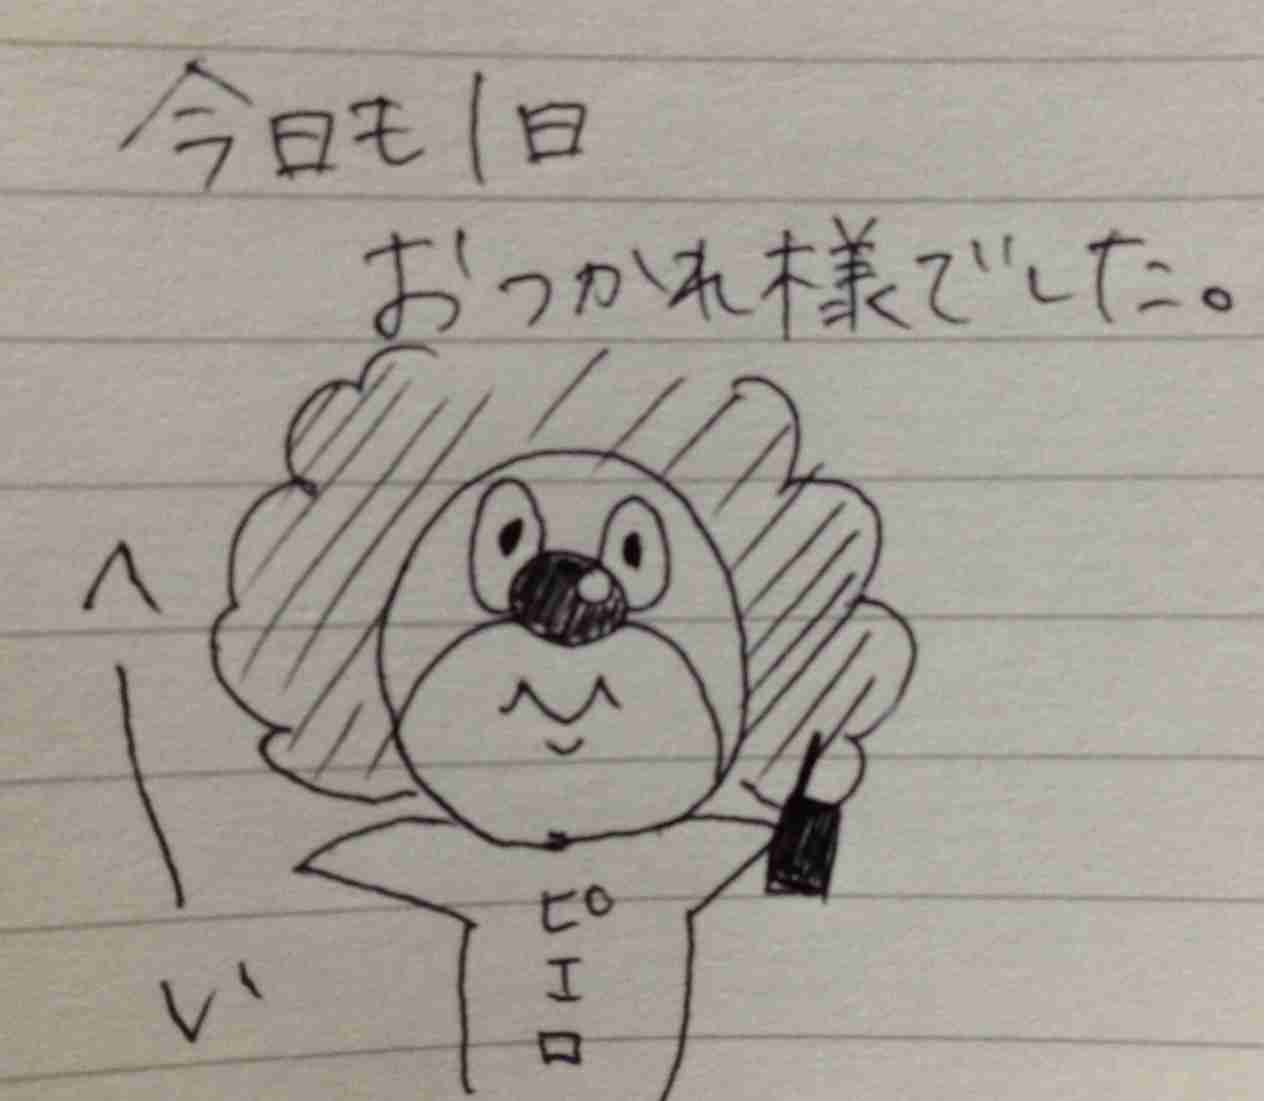 今日も1日
おつかれ様でした。
へーい
ピエロ